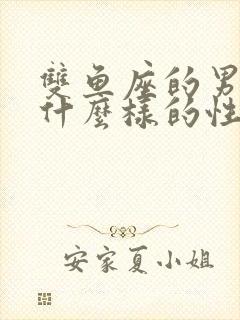 雙魚座的男
什麼樣的性
安家夏小姐